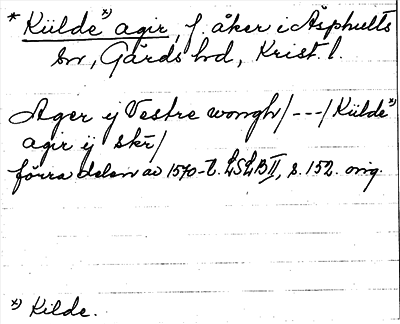 * Külde*) agir, f. åker i Äsphults
sn, Gärds hd, Krist. l.
Ager ÿ Vestre wongh/---/Külde*)
agir ÿ skr/
förra delen av 1570-t. LSLB II, s. 152. orig.
*) Kilde.